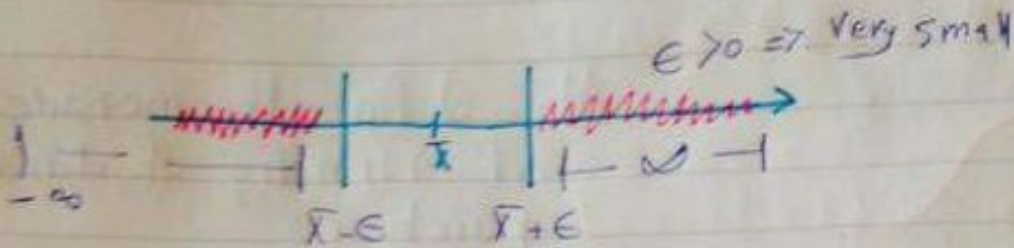 ϵ >0 => Very small
x̄
-∞ ∞
x̄-ϵ x̄+ϵ